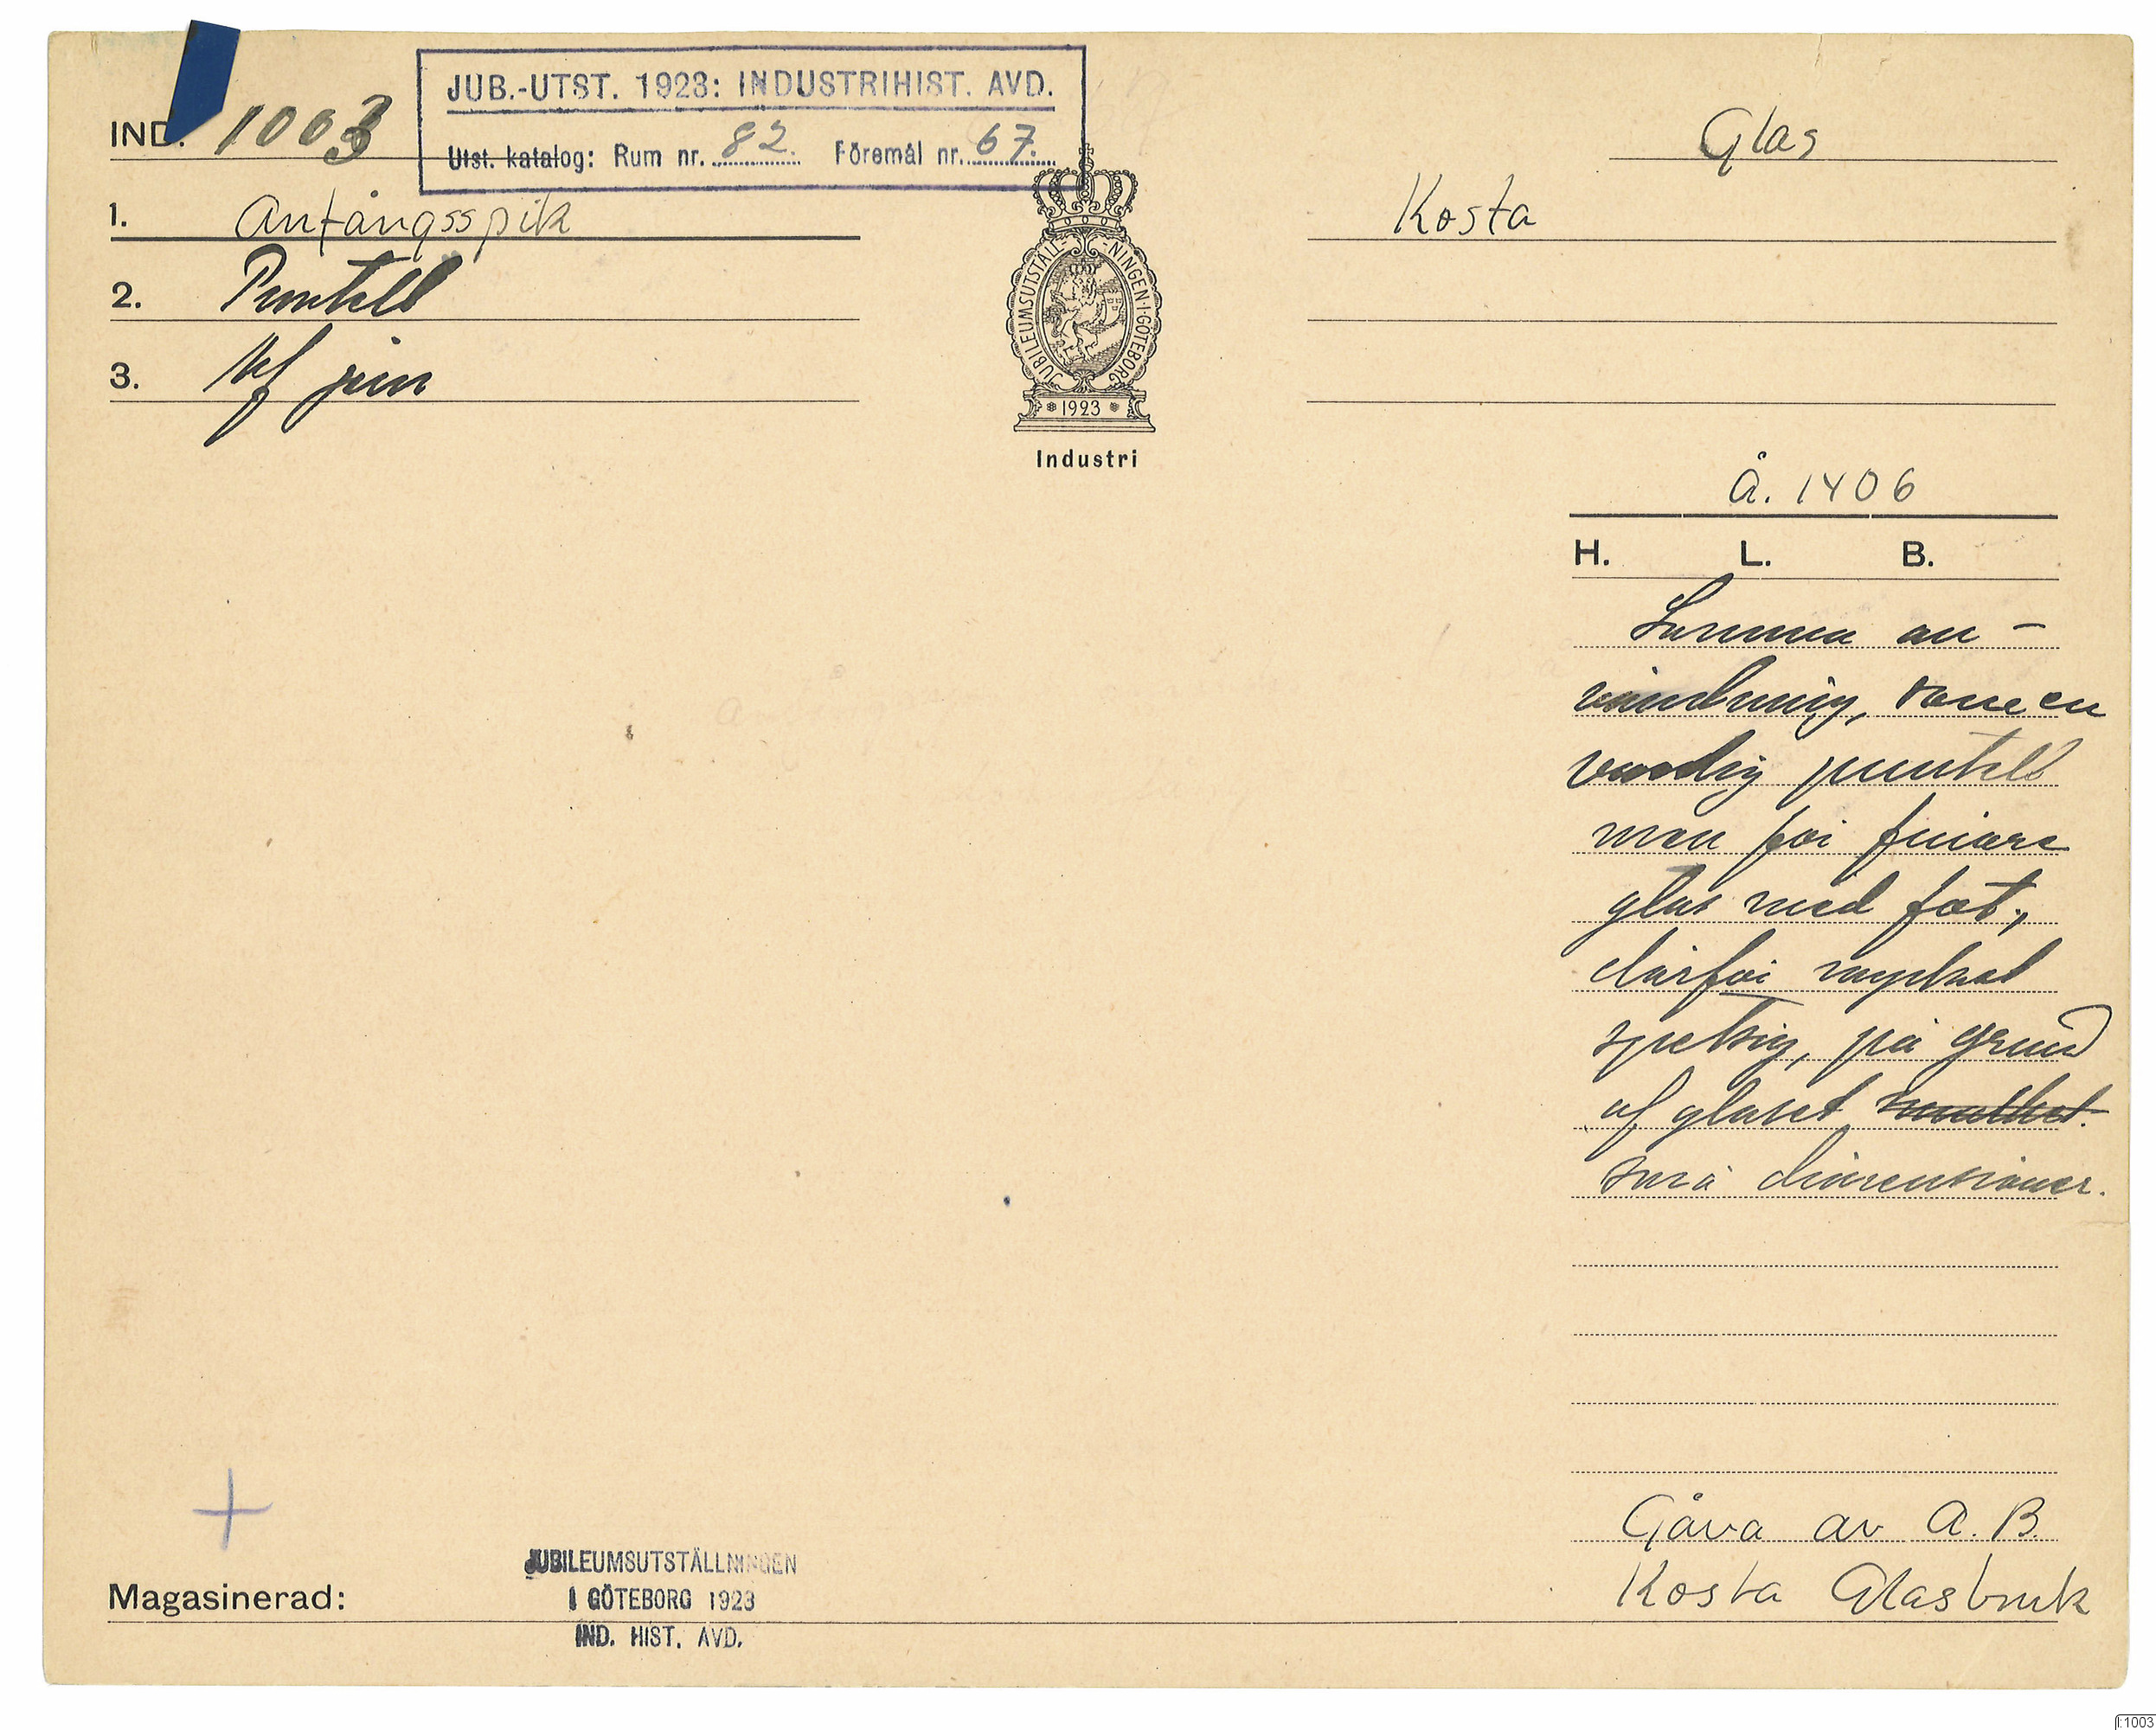 JUB.-UTST. 1923: INDUSTRIHIST. AVD.
Utst. katalog: Rum nr. 82. Föremål nr. 67.
IND. 1003
1. Anfångsspik
2. Puntell
3. Af jern
JUBILEUMSUTSTÄLL-NINGEN·I·GÖTEBORG
1923
Industri
Glas
Kosta
Å. 1406
H. L. B.
Samma an-
vändning, som en
vanlig puntell
men för finare
glas med fot,
därför mycket
spetsig, på grund
af glaset
små dimensioner.
Gåva av A.B.
Kosta Glasbruk
Magasinerad:
JUBILEUMSUTSTÄLLNINGEN
I GÖTEBORG 1923
IND. HIST. AVD.
I:1003